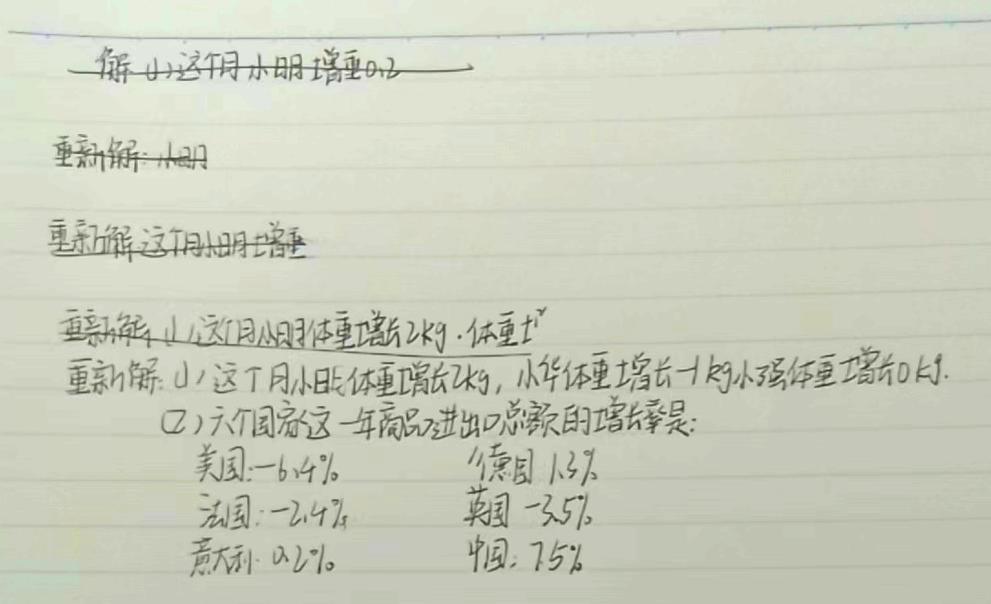 解(1)这个月小明增重0.2
重新解:小明
重新解 这个月小明增重
重新解:(1)这个月小明体重增长2kg.体重
重新解:(1)这个月小明体重增长2kg,小华体重增长-1kg小强体重增长0kg.
(2)六个国家这一年商品进出口总额的增长率是:
美国:-6.4% 德国 1.3%
法国:-2.4% 英国 -3.5%
意大利:0.2% 中国:7.5%